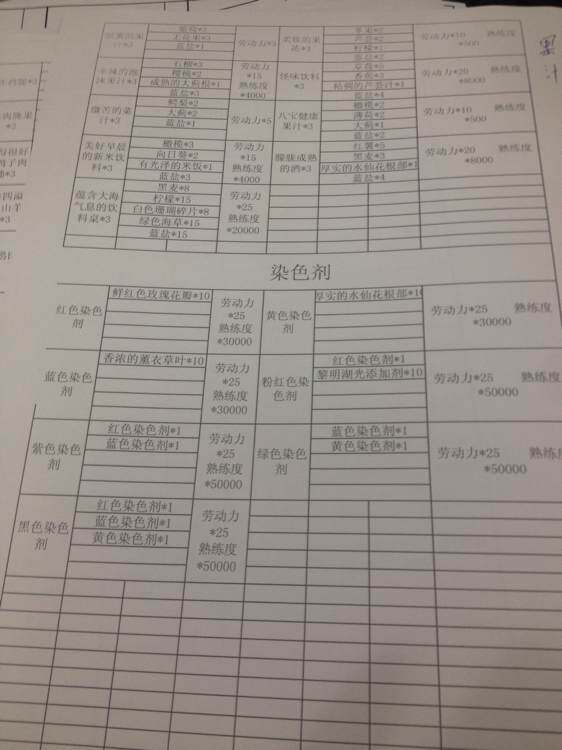 果汁
无花果*3
蓝盐*1
劳动力*5
蓝盐*1
劳动力*10 熟练度
*500
石榴*3
橄榄*2
成熟的大蓟根*1
蓝盐*3
劳动力
*15
熟练度
*4000
怪味饮料
*3
香蕉*3
蓝盐*4
劳动力*20 熟练度
*8000
微苦的果
汁*3
大蓟*2
蓝盐*1
劳动力*5
八宝健康
果汁*3
橄榄*2
薄荷*2
大蓟*1
蓝盐*2
劳动力*10 熟练度
*500
美好早晨
的新米饮
料*3
橄榄*3
向日葵*2
有光泽的米饭*1
蓝盐*3
劳动力
*15
熟练度
*4000
朦胧成熟
的酒*3
红薯*5
黑麦*3
厚实的水仙花根部*1
蓝盐*4
劳动力*20 熟练度
*8000
蕴含大海
气息的饮
料桌*3
黑麦*8
柠檬*15
白色珊瑚碎片*8
绿色海草*15
蓝盐*15
劳动力
*25
熟练度
*20000
染色剂
红色染色
剂
鲜红色玫瑰花瓣*10
劳动力
*25
熟练度
*30000
黄色染色
剂
厚实的水仙花根部*1
劳动力*25 熟练度
*30000
蓝色染色
剂
香浓的薰衣草叶*10
劳动力
*25
熟练度
*30000
粉红色染
色剂
红色染色剂*1
黎明湖光添加剂*10
劳动力*25 熟练度
*50000
紫色染色
剂
红色染色剂*1
蓝色染色剂*1
劳动力
*25
熟练度
*50000
绿色染色
剂
蓝色染色剂*1
黄色染色剂*1
劳动力*25 熟练
*50000
黑色染色
剂
红色染色剂*1
蓝色染色剂*1
黄色染色剂*1
劳动力
*25
熟练度
*50000